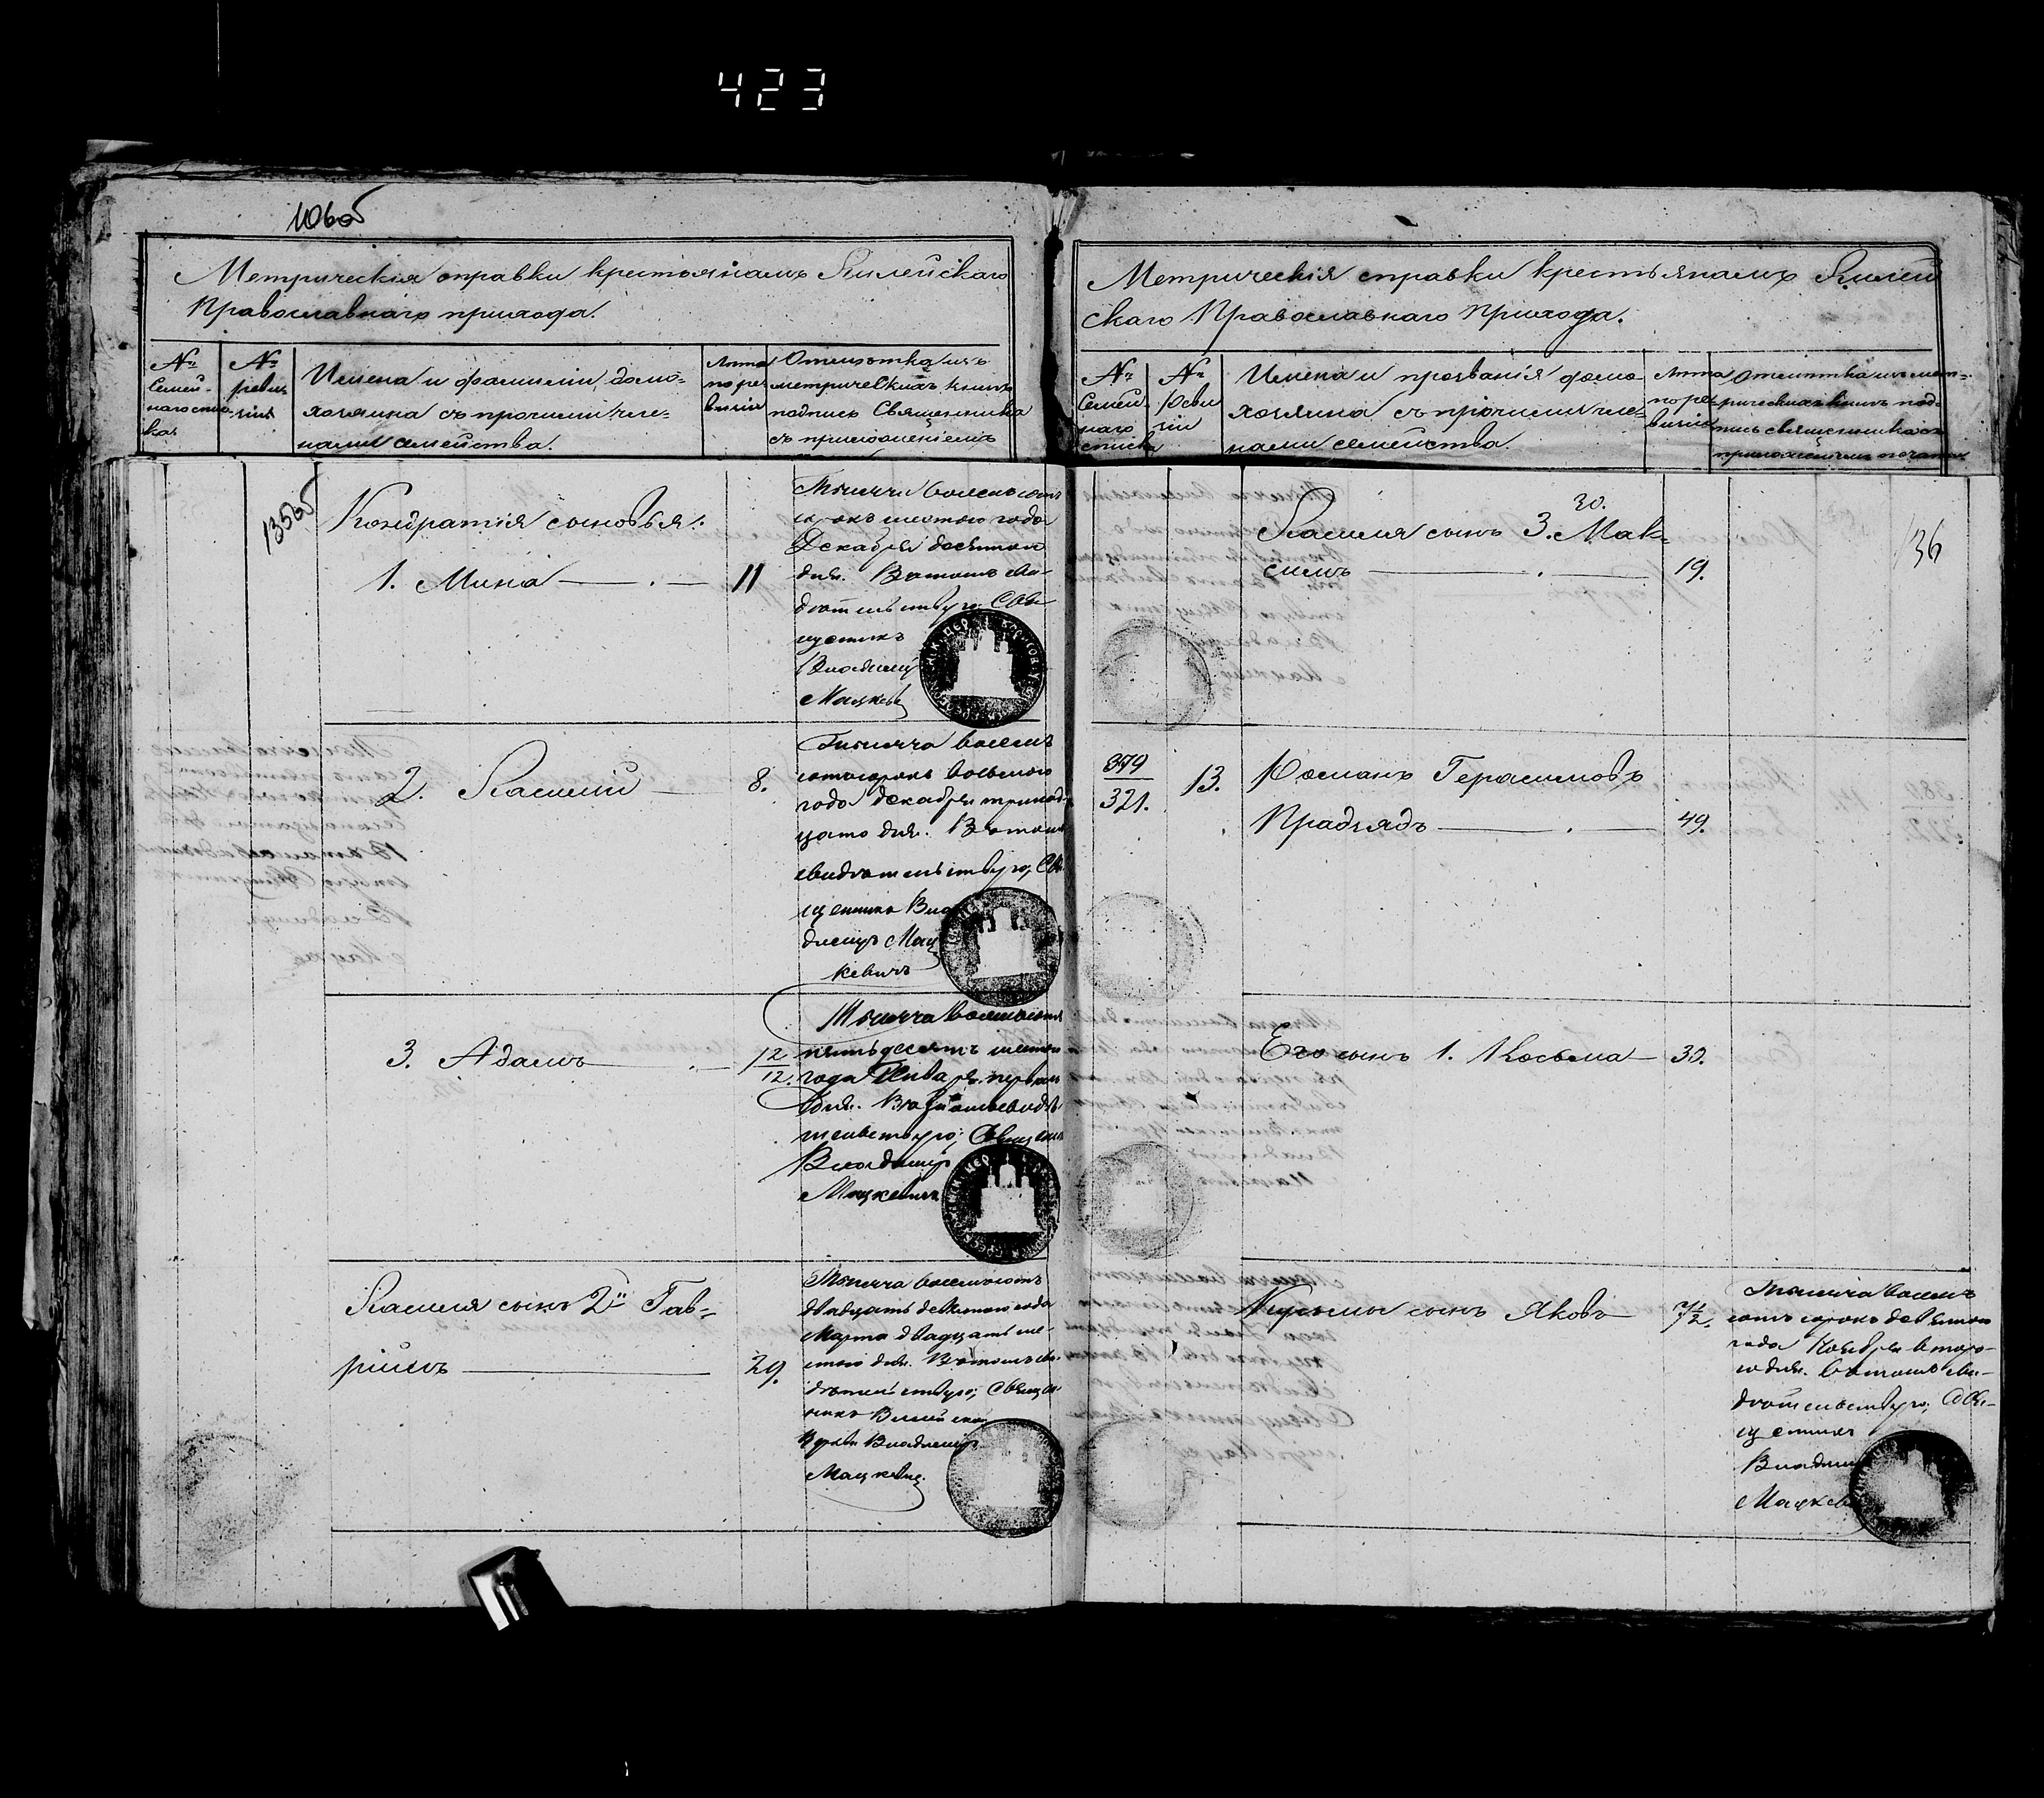 423
106об
Метрическія справки крестьянамъ
Православнаго прихода.
№ Семей-наго спи-ска
№ ревизіи
Имена и фамиліи домо-
хозяина съ прочими чле-
нами семейства.
Лѣта по ре-визіи
Отмѣтка изъ
метрическихъ книгъ
подпись Священника
съ приложеніемъ
135об
Кондратія сыновья:
1. Мина — . — 11
Тысяча восемьсотъ
сорокъ шестого года
Декабря
дня. Въ томъ сви-
дѣтельствую, Свя-
щенникъ
Владиміръ
Мацкевичъ
2. — 8.
Тысяча восемь
сотъ сорокъ восьмого
года декабря тринад-
цато дня. Въ томъ
свидѣтельствую, Свя-
щенникъ Вла-
диміръ Мац
кевичъ
3. Адамъ — . — 12/12.
Тысяча восемьсотъ
пятьдесятъ шестого
года Января первого
дня. Въ
Священ
Владиміръ
Мацкевичъ
сынъ 2й Гав-
ріилъ — 29.
Тысяча восемьсотъ
двадцать девятого года
Марта двадцать ше-
стого дня. Въ томъ сви-
дѣтельствую, Священ-
никъ
Церкви Владиміръ
Мацкевичъ.
Метрическія справки крестьянамъ
скаго Православнаго Прихода.
№ Семей наго списка
№ Реви зіи
Имена и прозванія домо
хозяина съ прочими чле-
нами семейства.
Лѣта по ре-визіи
Отмѣтка изъ мет-
рическихъ книгъ под-
пись священника съ
приложеніемъ печати
136
30.
сынъ 3. Мак-
симъ — . — 19.
379/321. 13. Романъ Герасимовъ
Прадзядъ — . — 49.
Его сынъ 1. Косьма — 30.
сынъ Яковъ — 7 1/2.
Тысяча восемь
сотъ сорокъ девятого
года Ноября второ-
го дня. Въ томъ сви-
дѣтельствую, Свя-
щенникъ
Владиміръ
Мацкевичъ